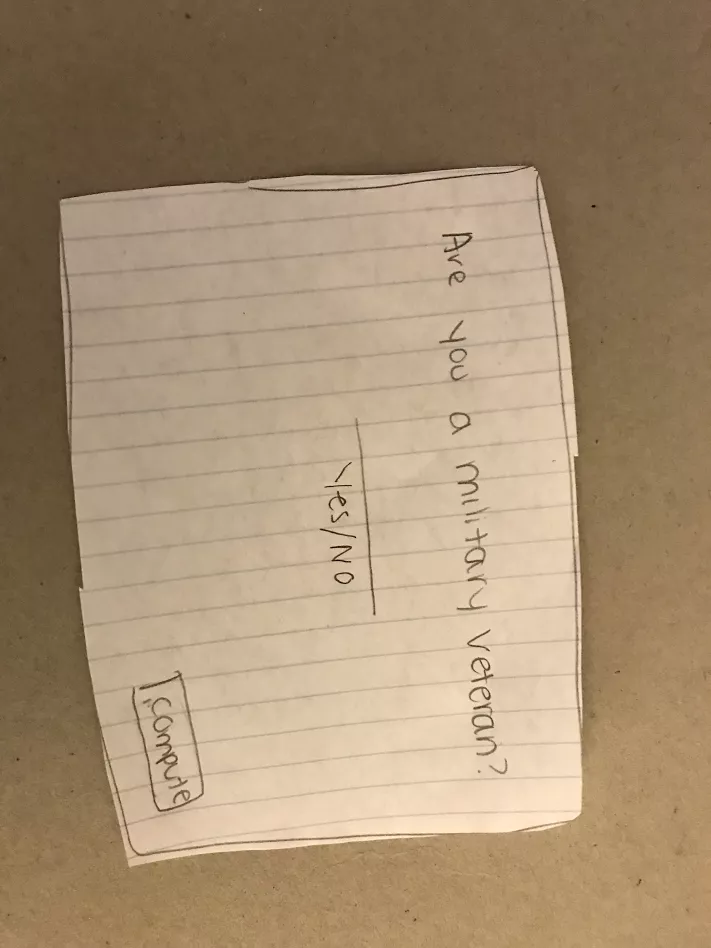 Are you a military veteran?
Yes/No
compute